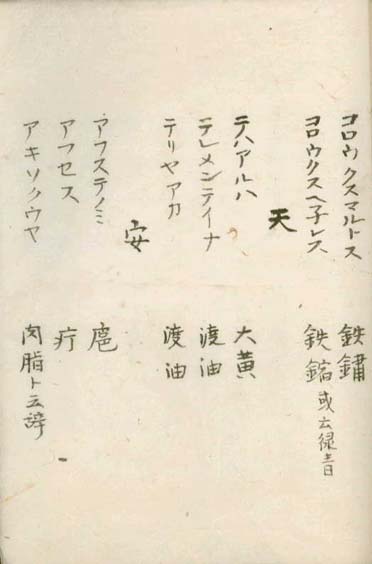 コロウクスマルトス 鉄鏽
コロウクスヘ子レス 鉄鏥 或云緑青
天
テハアルハ 大黄
テレメンテイナ 渡油
テリヤアカ 渡油
安
アフステノミ 疤
アフセス 疔
アキソクウヤ 肉脂ト云